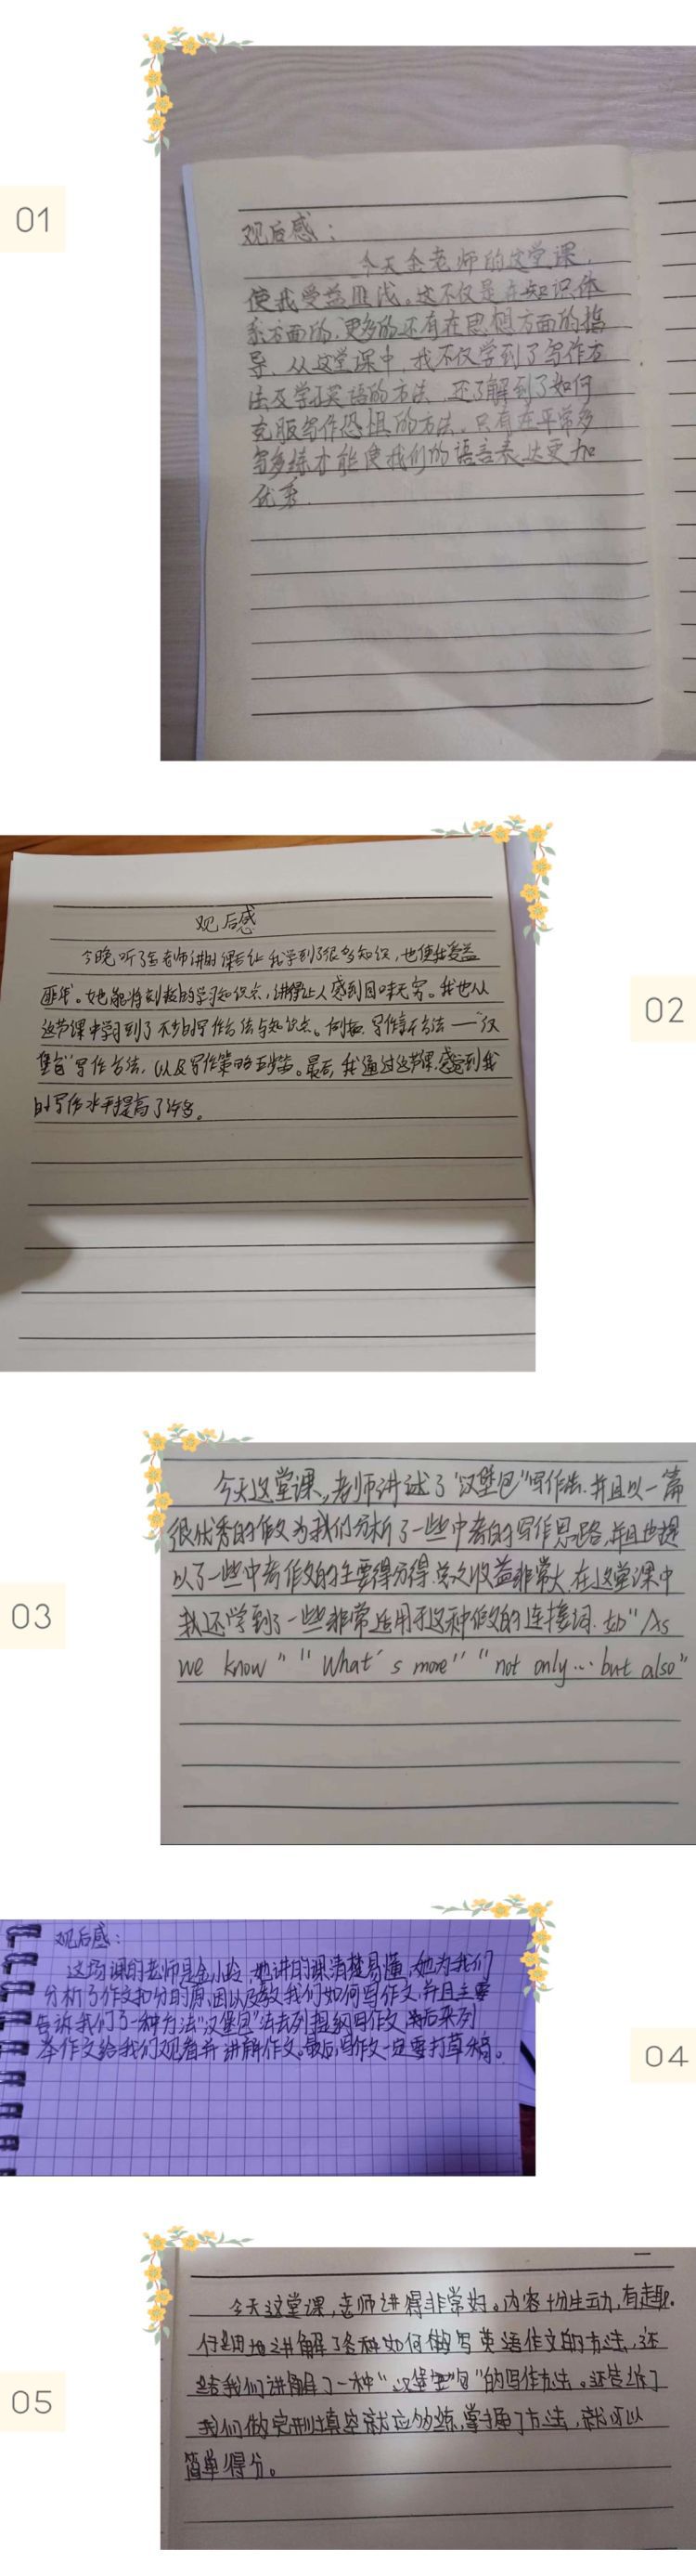 01
观后感：
今天金老师的这堂课，
使我受益匪浅。这不仅是在知识体
系方面的，更多的还有在思想方面的指
导。从这堂课中，我不仅学到了写作方
法及学习英语的方法，还了解到了如何
克服写作恐惧的方法。只有在平常多
写多练才能使我们的语言表达更加
优秀。
02
观后感
今晚听了金老师讲的课后让我学到了很多知识，也使我受益
匪浅。她能将刻板的学习知识点，讲得让人感到回味无穷。我也从
这节课中学习到了不少的写作方法与知识点。例如，写作方法——“汉
堡包”写作方法，以及写作策略五步。最后，我通过这节课，感觉到我
的写作水平提高了许多。
03
今天这堂课，老师讲述了“汉堡包”写作法，并且以一篇
很优秀的作文为我们分析了一些中考的写作思路，并且也提
以了一些中考作文的主要得分得，总之收益非常大，在这堂课中
我还学到了一些非常适用于这种作文的连接词，如“As
we know” “What's more” “not only…but also”
04
观后感：
这场课的老师是金小玲，她讲的课清楚易懂，她为我们
分析了作文扣分的原因以及教我们如何写作文，并且主要
告诉我们了一种方法“汉堡包”法去列提纲写作文，
给我们观看并讲解作文。最后，写作文一定要打草稿。
05
今天这堂课，老师讲得非常好。内容十分生动，有趣。
仔细地讲解了各种如何做写英语作文的方法，还
给我们讲解了一种“汉堡包”的写作方法。还告诉了
我们做完形填空就应多练，掌握了方法，就可以
简单得分。